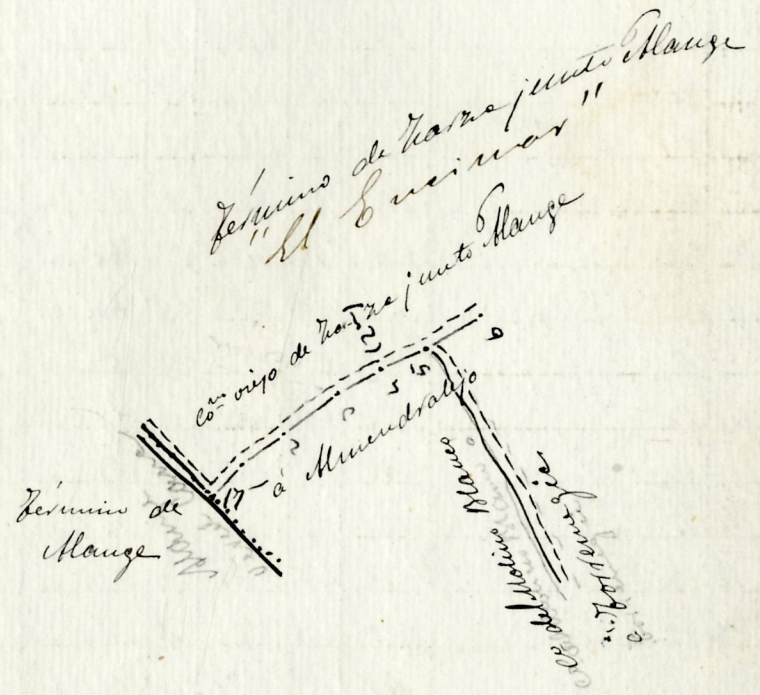 Término de Zarza junto Alange
"El Encinar"
Cº viejo de Zarza junto Alange
á Almendralejo
17
5
6
Término de
Alange
Cº del Molino Blanco